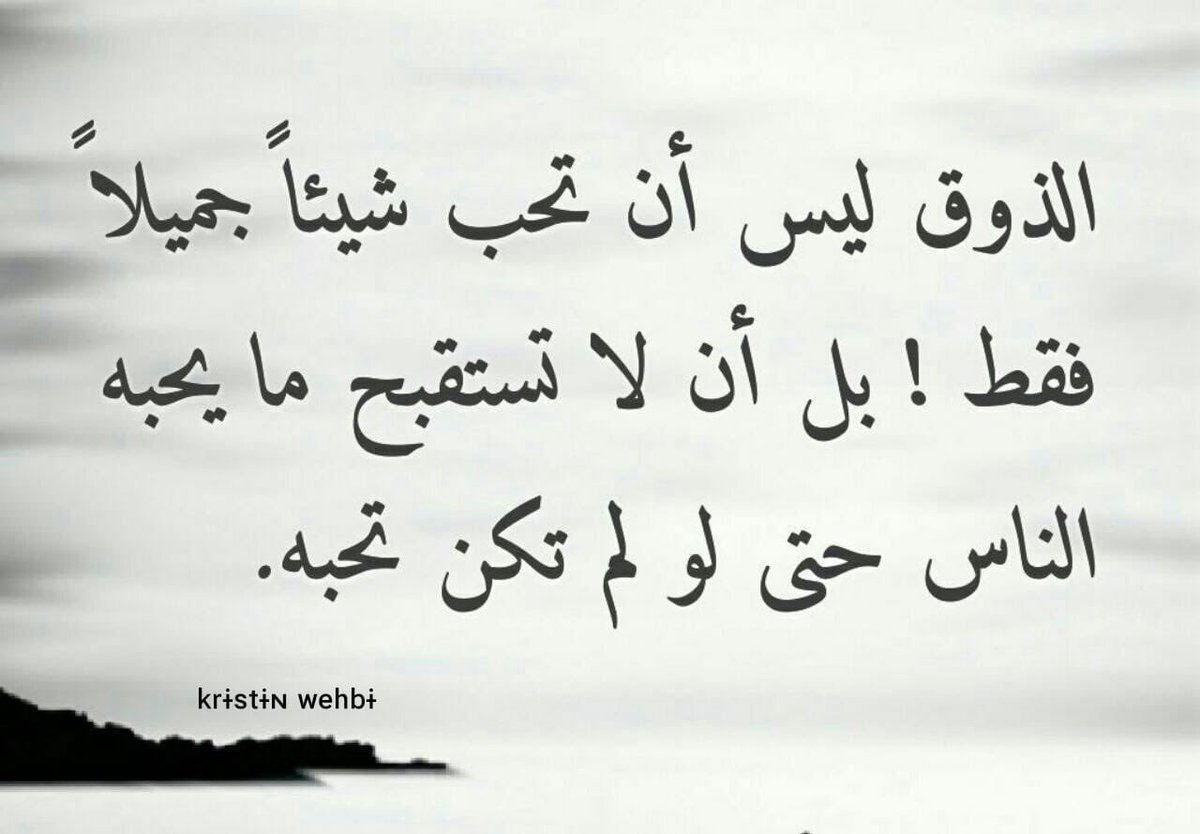 الذوق ليس أن تحب شيئاً جميلاً
فقط ! بل أن لا تستقبح ما يحبه
الناس حتى لو لم تكن تحبه.
krɨstɨɴ wehbɨ